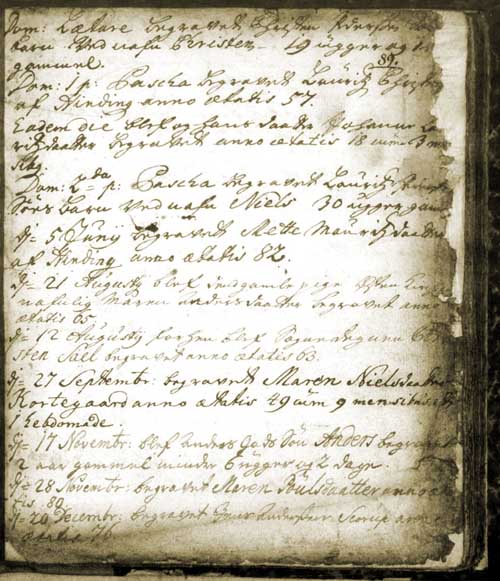 Dom: Lætare begravet Christen Anders
barn ved nafn Christen 19 uger og
gammel.
89.
Dom: 1 p: Pascha begravet Lauritz Christ
af Hinding anno ætatis 57.
Eadem die blef og hans daatter Johanne La
ritzdaatter begravet anno ætatis 18 cum 3 men
Dom: 2da p: Pascha begravet Lauritz
Søns barn ved nafn Niels 30 uger gam
d= 5 Junij begravet Mette Mauritzdaatter
af Hinding anno ætatis 82.
d= 21 Augusti blef pige
nafnlig Maren Andersdaatter begravet anno
ætatis 65.
d= 12 Augusti blef
sten Sall begravet anno ætatis 63.
d= 27 Septembr: begravet Maren Nielsdaatter
Kortegaard anno ætatis 49 cum 9 mensibus et
1 hebdomade.
d= 17 Novembr: blef Anders Søn Anders begravet
2 aar gammel minder 6 uger og 2 dage.
d= 28 Novembr: begravet Maren Poulsdaatter anno æta
tis 80.
d= 20 Decembr: begravet Scorup anno
ætatis